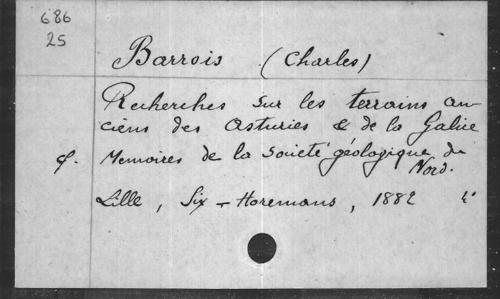 686
25
Barrois (Charles)
Recherches sur les terrains an-
ciens des Asturies & de la Galice
Memoires de la Societé géologique du
Nord.
Lille, Six-Horemans, 1882 4°